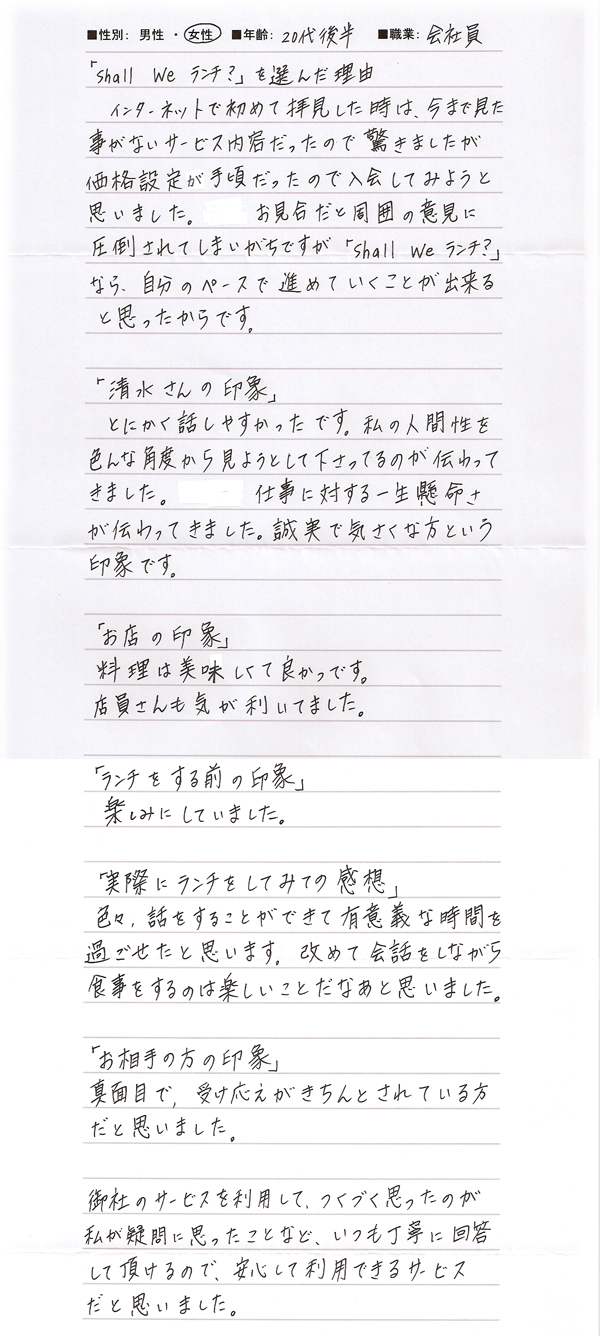 ■性別： 男性 ・ 女性 ■年齢： 20代後半 ■職業： 会社員
「Shall We ランチ？」を選んだ理由
インターネットで初めて拝見した時は、今まで見た
事がないサービス内容だったので驚きましたが
価格設定が手頃だったので入会してみようと
思いました。 お見合だと周囲の意見に
圧倒されてしまいがちですが「Shall We ランチ？」
なら、自分のペースで進めていくことが出来る
と思ったからです。
「清水さんの印象」
とにかく話しやすかったです。私の人間性を
色んな角度から見ようとして下さってるのが伝わって
きました。 仕事に対する一生懸命さ
が伝わってきました。誠実で気さくな方という
印象です。
「お店の印象」
料理は美味しくて良かっです。
店員さんも気が利いてました。
「ランチをする前の印象」
楽しみにしていました。
「実際にランチをしてみての感想」
色々、話をすることができて有意義な時間を
過ごせたと思います。改めて会話をしながら
食事をするのは楽しいことだなあと思いました。
「お相手の方の印象」
真面目で、受け応えがきちんとされている方
だと思いました。
御社のサービスを利用して、つくづく思ったのが
私が疑問に思ったことなど、いつも丁寧に回答
して頂けるので、安心して利用できるサービス
だと思いました。